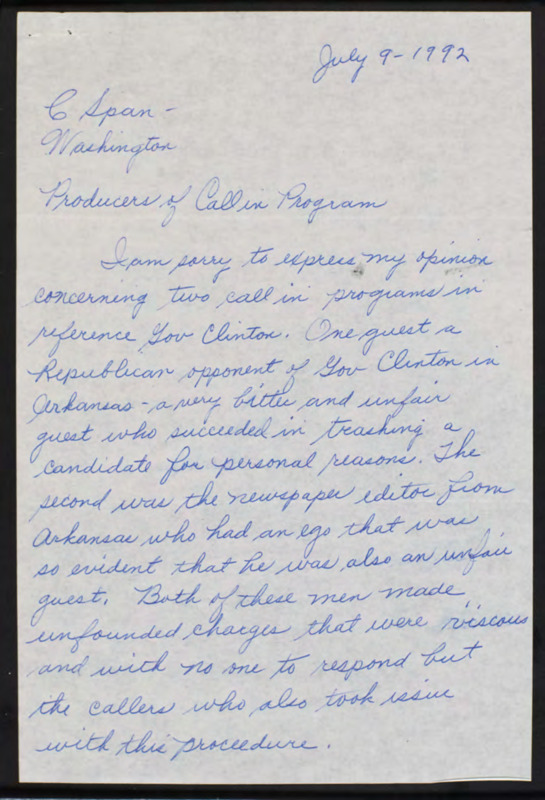 July 9-1992
C Span-
Washington
Producers of Call in Program
I am sorry to express my opinion
concerning two call in programs in
reference Gov Clinton. One guest a
Republican opponent of Gov Clinton in
Arkansas - a very bitter and unfair
guest who succeeded in trashing a
candidate for personal reasons. The
second was the newspaper editor from
Arkansas who had an ego that was
so evident that he was also an unfair
guest. Both of these men made
unfounded charges that were "viscous
and with no one to respond but
the callers who also took issue
with this proceedure.